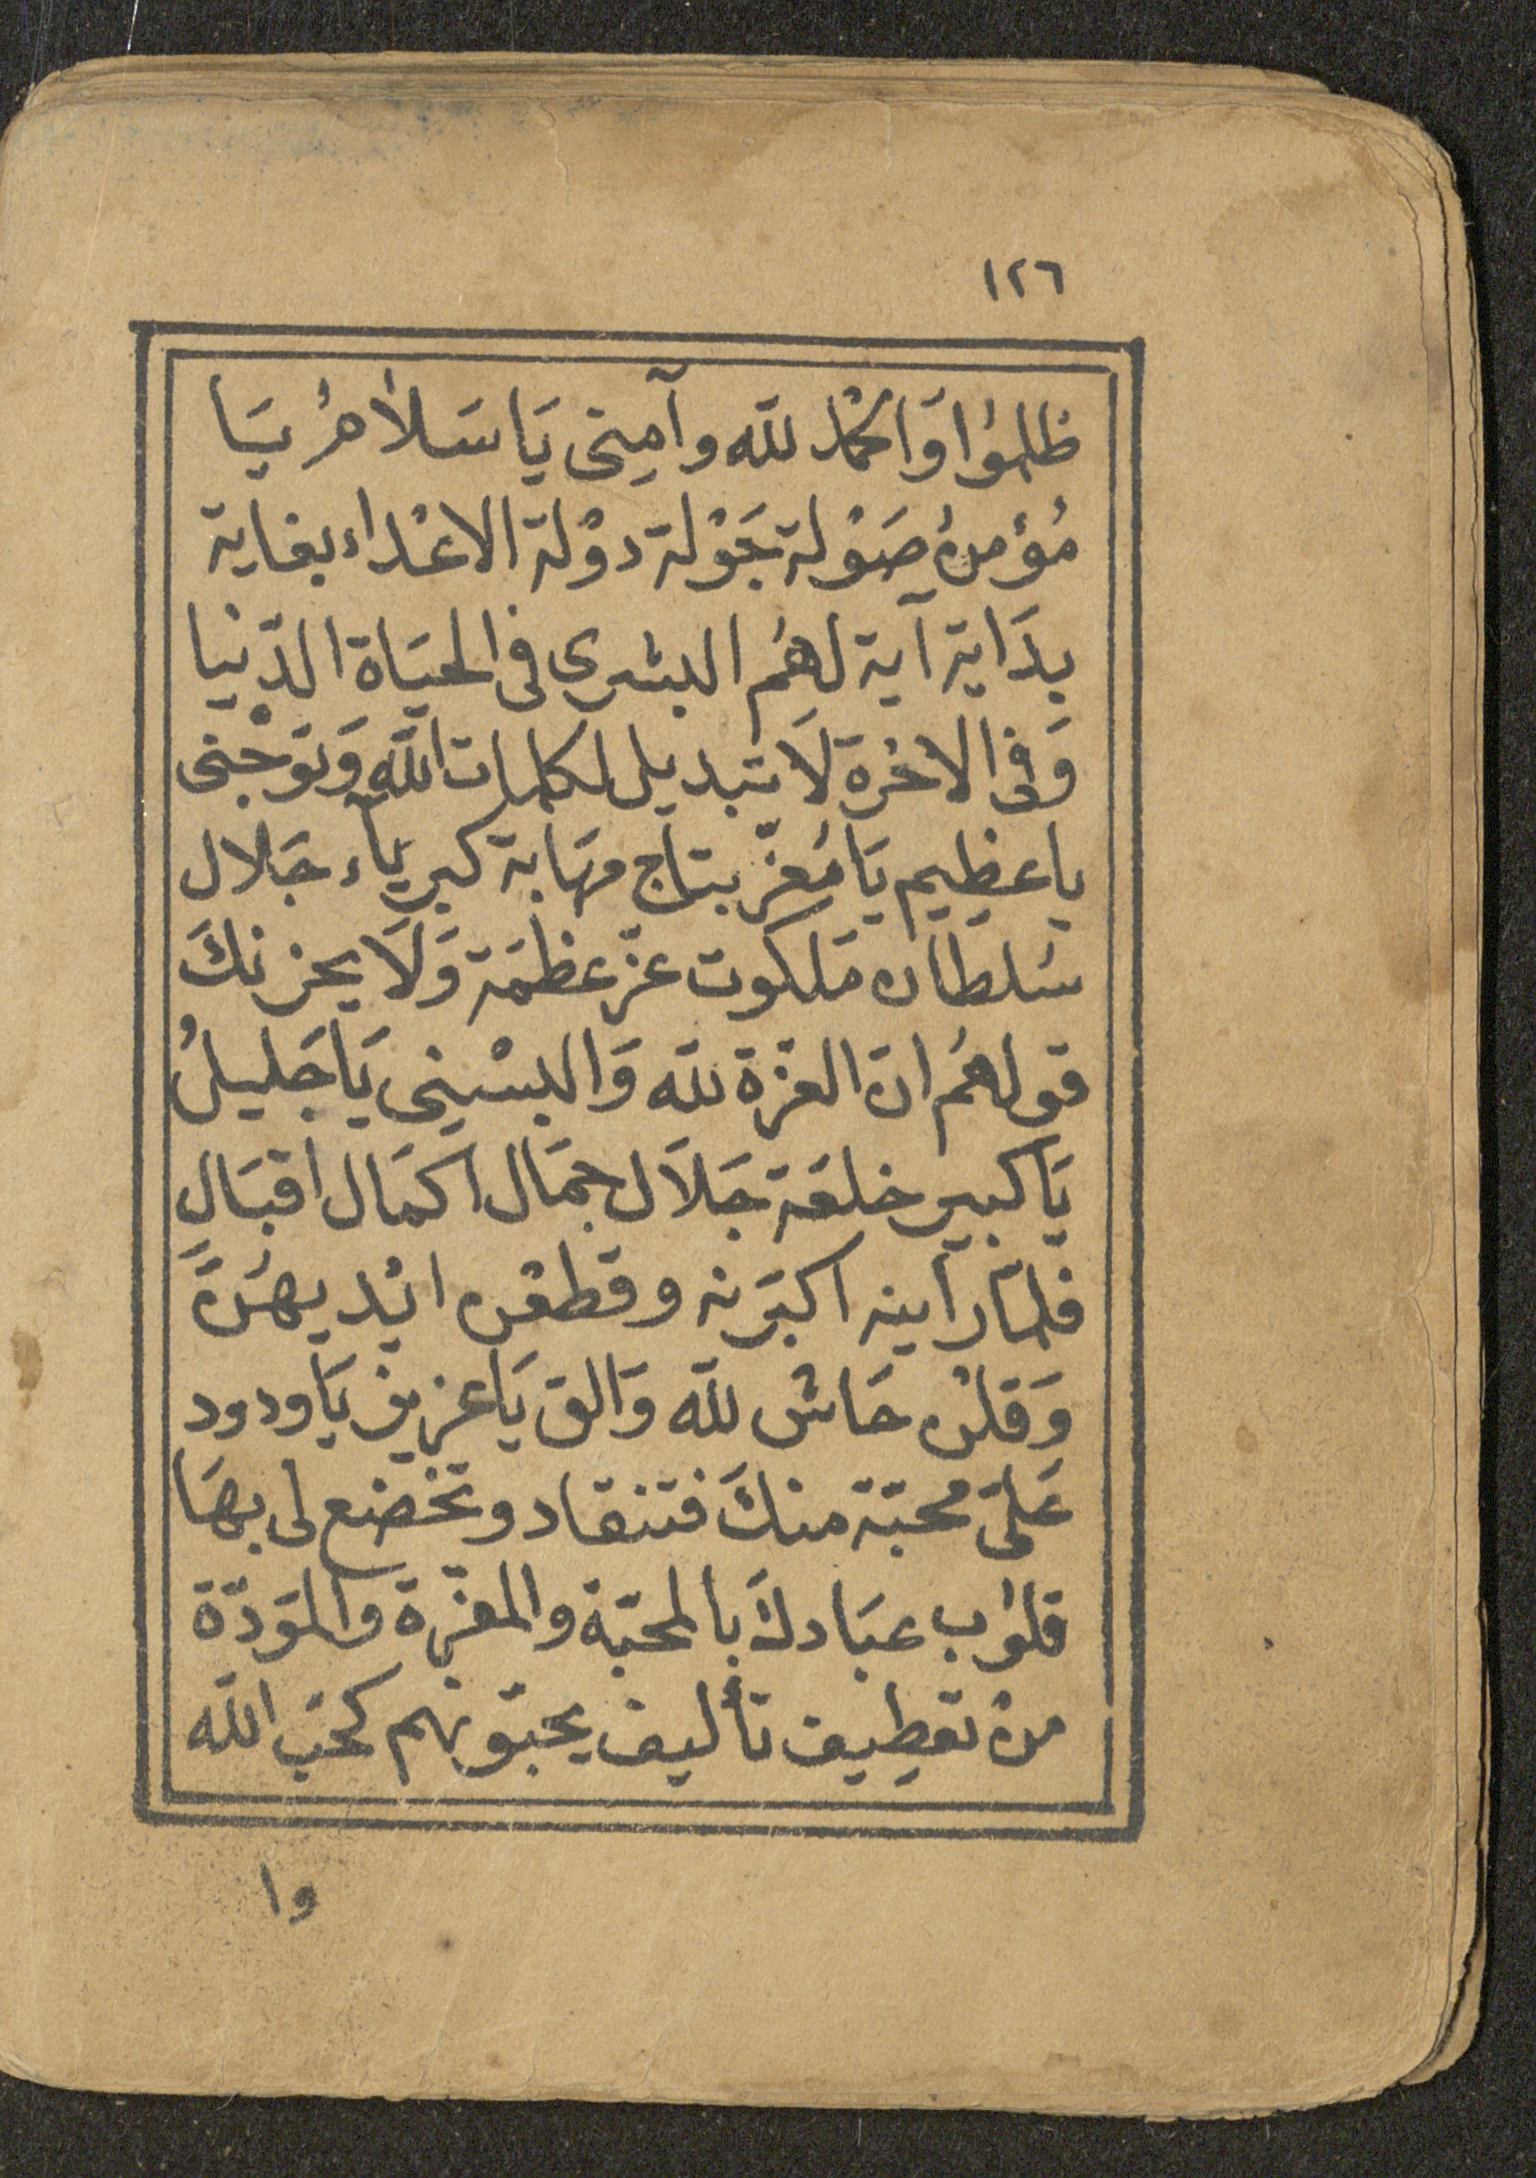 ١٢٦
ظلمُوا وَالحَمْد للّه وآمِنّى يَا سَلاٰمُ يَا
مُؤْمنُ صَوْلة جَوْلة دوْلة الاعْداء بغاية
بدَاية آية لهُم البشرى فى الحيَاة الدّنيا
وَفى الاٰخرة لَا تبديل لكلمات اللّه وَتوّجْنى
يا عظِيم يَا مُعزّ بتاج مهَابة كبرياۤء جَلال
سُلطان مَلكوت عزّ عظمَة وَلَا يحزنكَ
قولهُم انّ العزّة للّه وَالبسْنِى يَا جَليلُ
يَا كبير خلعَة جَلَال جمَال اكمَال اقبَال
فلمّا رأينه اكبَرنه وقطعْن ايْديهُنَّ
وَقلْن حَاش للّه وَالق يَا عزيز يَا ودود
عَلىّ محبّة منكَ فتنقاد وتخضع لى بهَا
قلوُب عبَادكَ بالمحبّة والمعزّة والموَدّة
منْ تعطِيف تأليف يحبّونهم كحُبّ اللّه
وا